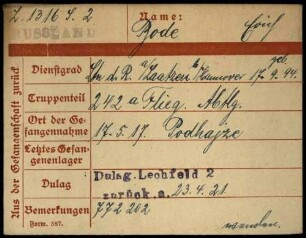 Z. 1316 S. 2
Name:
RUSSLAND
Bode Erich
geb.
Dienstgrad Ltn d. R. a/ Laatzen b/ Hannover 17. 9. 94.
Truppenteil 242 a Flieg. Abtlg.
Ort der Ge-
fangennahme 17. 5. 17. Podhajze
Letztes Gefan-
genenlager
Dulag Dulag. Lechfeld 2
zurück a. 23.4.21
Bemerkungen 772 202
Form. 587.
Aus der Gefangenschaft zurück